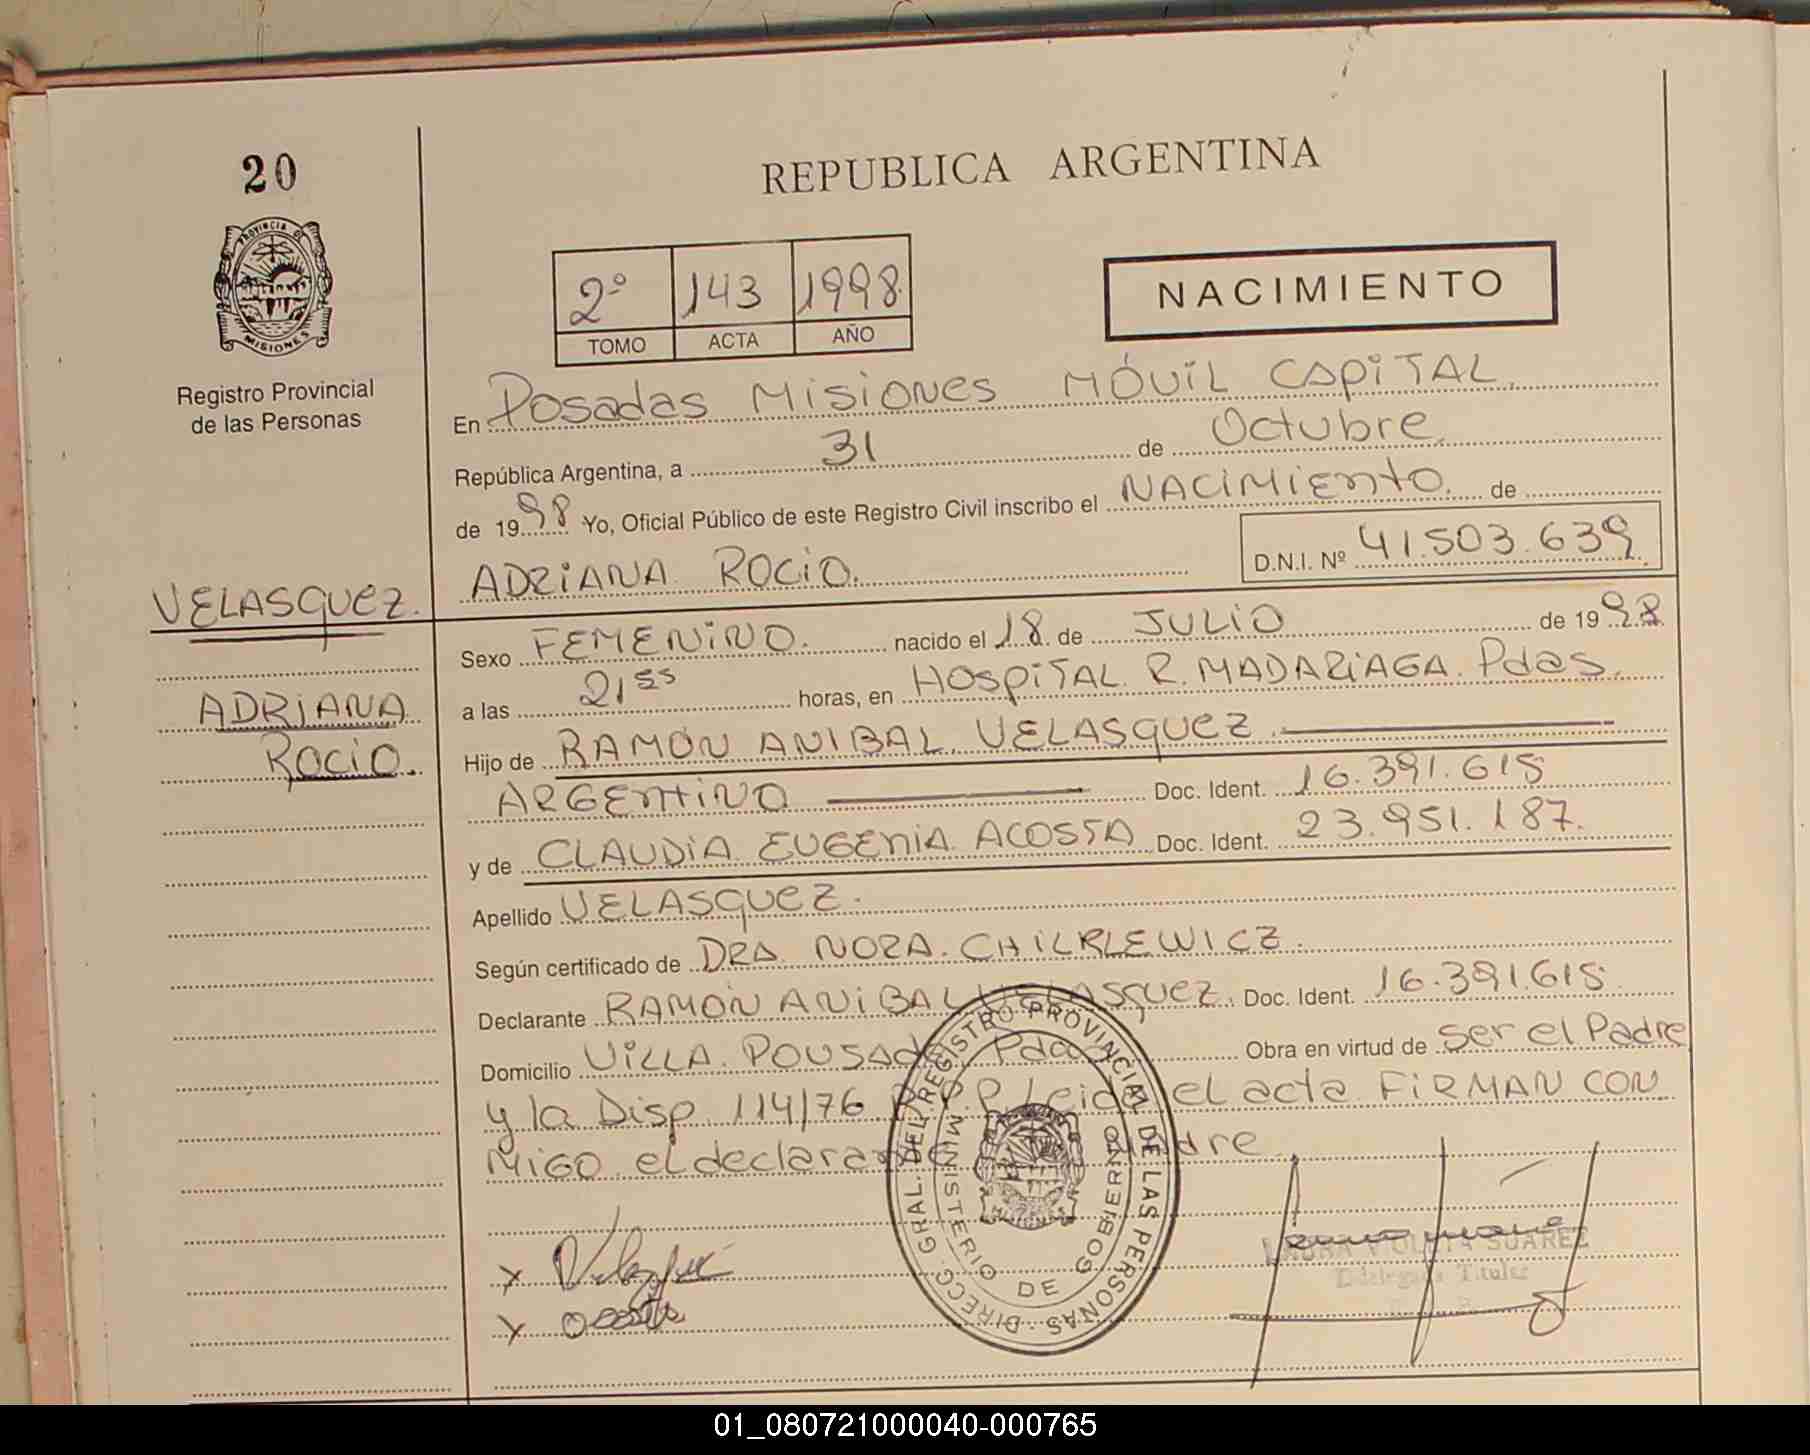 20
REPUBLICA ARGENTINA
PROVINCIA DE
MISIONES
Registro Provincial
de las Personas
2º 143 1998
TOMO ACTA AÑO
NACIMIENTO
En Posadas Misiones MÓVIL CAPITAL
República Argentina, a 31 de Octubre
de 1998 Yo, Oficial Público de este Registro Civil inscribo el NACIMIENTO de
ADRIANA ROCIO. D.N.I. Nº 41.503.639
VELASQUEZ.
Sexo FEMENINO. nacido el 18 de JULIO de 1998
ADRIANA
a las 21 55 horas, en HOSPITAL R. MADARIAGA. Pdas.
ROCIO.
Hijo de RAMÓN ANIBAL VELASQUEZ
ARGENTINO Doc. Ident. 16.391.615
y de CLAUDIA EUGENIA ACOSTA Doc. Ident. 23.951.187.
Apellido VELASQUEZ.
Según certificado de DRA. NORA
Declarante RAMÓN ANIBAL VELASQUEZ. Doc. Ident. 16.391615
Domicilio VILLA POUSADAS Pdas Obra en virtud de ser el Padre
y la Disp. 114/76 Leida el acta FIRMAN CON
MIGO el declarante madre.
DIRECC. GRAL. DEL REGISTRO PROVINCIAL DE LAS PERSONAS
MINISTERIO DE GOBIERNO
LAURA VIOLETA SUAREZ
Titular
01_080721000040-000765